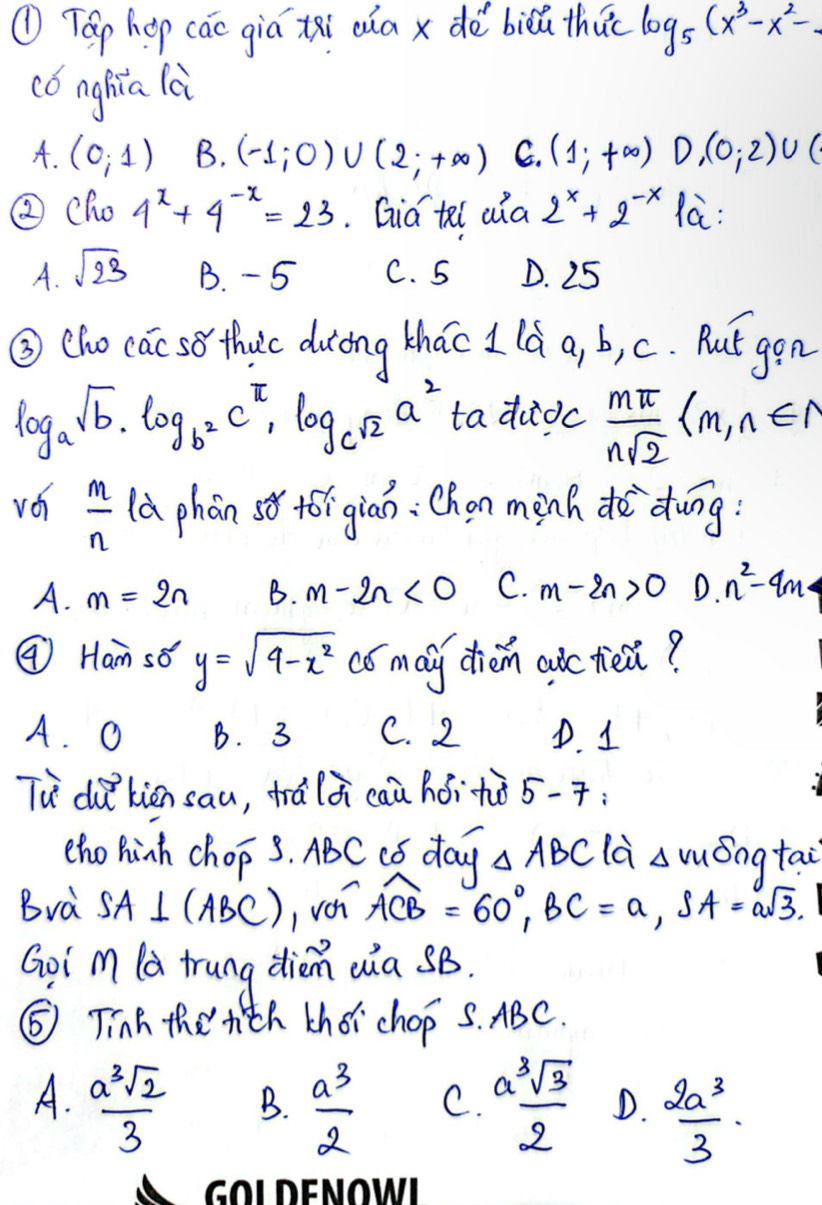 ① Tập hợp các giá trị của x để biểu thức log₅ (x³-x²-
có nghĩa là
A. (0;1) B. (-1;0) ∪ (2;+∞) C. (1;+∞) D. (0;2) ∪ (
② Cho 4ˣ + 4⁻ˣ = 23. Giá trị của 2ˣ + 2⁻ˣ là:
A. √23 B. -5 C. 5 D. 25
③ Cho các số thực dương khác 1 là a, b, c. Rút gọn
logₐ√b . log_{b²} c^π . log_{c√2} a² ta được mπ/(n√2) (m,n ∈ N
với m/n là phân số tối giản. Chọn mệnh đề đúng:
A. m = 2n B. m-2n < 0 C. m-2n > 0 D. n²-4m
④ Hàm số y = √(4-x²) có mấy điểm cực tiểu ?
A. 0 B. 3 C. 2 D. 1
Từ dữ kiện sau, trả lời câu hỏi từ 5-7:
Cho hình chóp S.ABC có đáy △ ABC là △ vuông tại
B và SA ⊥ (ABC), với ACB = 60⁰, BC = a, SA = a√3.
Gọi M là trung điểm của SB.
⑤ Tính thể tích khối chóp S.ABC.
A. a³√2/3 B. a³/2 C. a³√3/2 D. 2a³/3.
GOLDENOWL